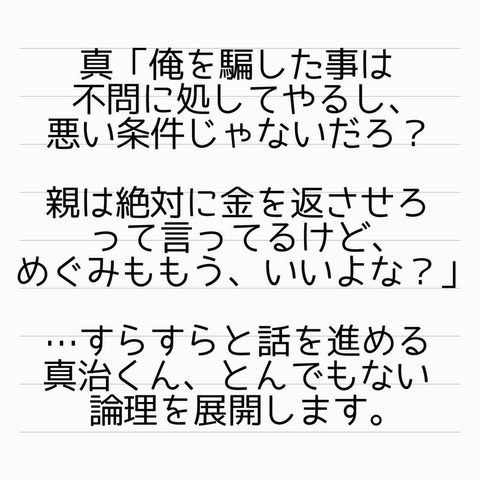 真「俺を騙した事は
不問に処してやるし、
悪い条件じゃないだろ？
親は絶対に金を返させろ
って言ってるけど、
めぐみももう、いいよな？」
…すらすらと話を進める
真治くん、とんでもない
論理を展開します。